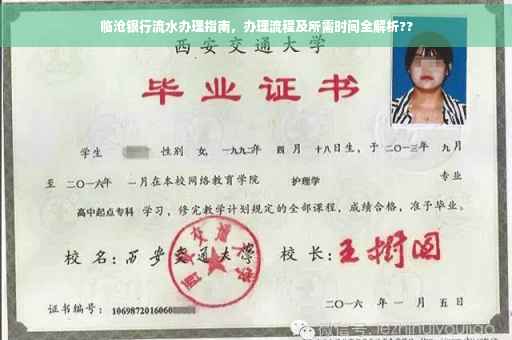 临沧银行流水办理指南，办理流程及所需时间全解析??
西安交通大学
毕业证书
学生 性别 女，一九九二年 四月 十八日生，于二〇一三年 九月
至 二〇一六年 一月在本校网络教育学院 护理学 专业
高中起点专科 学习，修完教学计划规定的全部课程，成绩合格，准予毕业。
校 名：西安交通大学 校 长：王树国
西安交通大学
证书编号：1069872016060
二〇一六 年 一 月 五 日
微信号: jezhihuiyoujiao